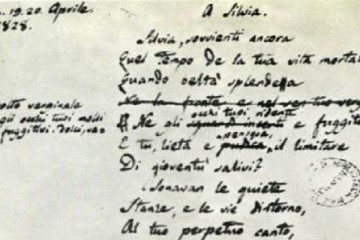 19.20. Aprile.
1828.
A Silvia.
Silvia, sovvienti ancora
Quel tempo De la tua vita mortal
Quando beltà splendea
Ne la fronte e nel
occhi tuoi ridenti
Ne gli e fuggit
pensosa
E tu, lieta e pudica, il limitare
Di gioventù salivi?
Sonavan le quiete
Stanze, e le vie dintorno,
Al tuo perpetuo canto,
verginale
occhi tuoi molli
fuggitivi. Dolci, va